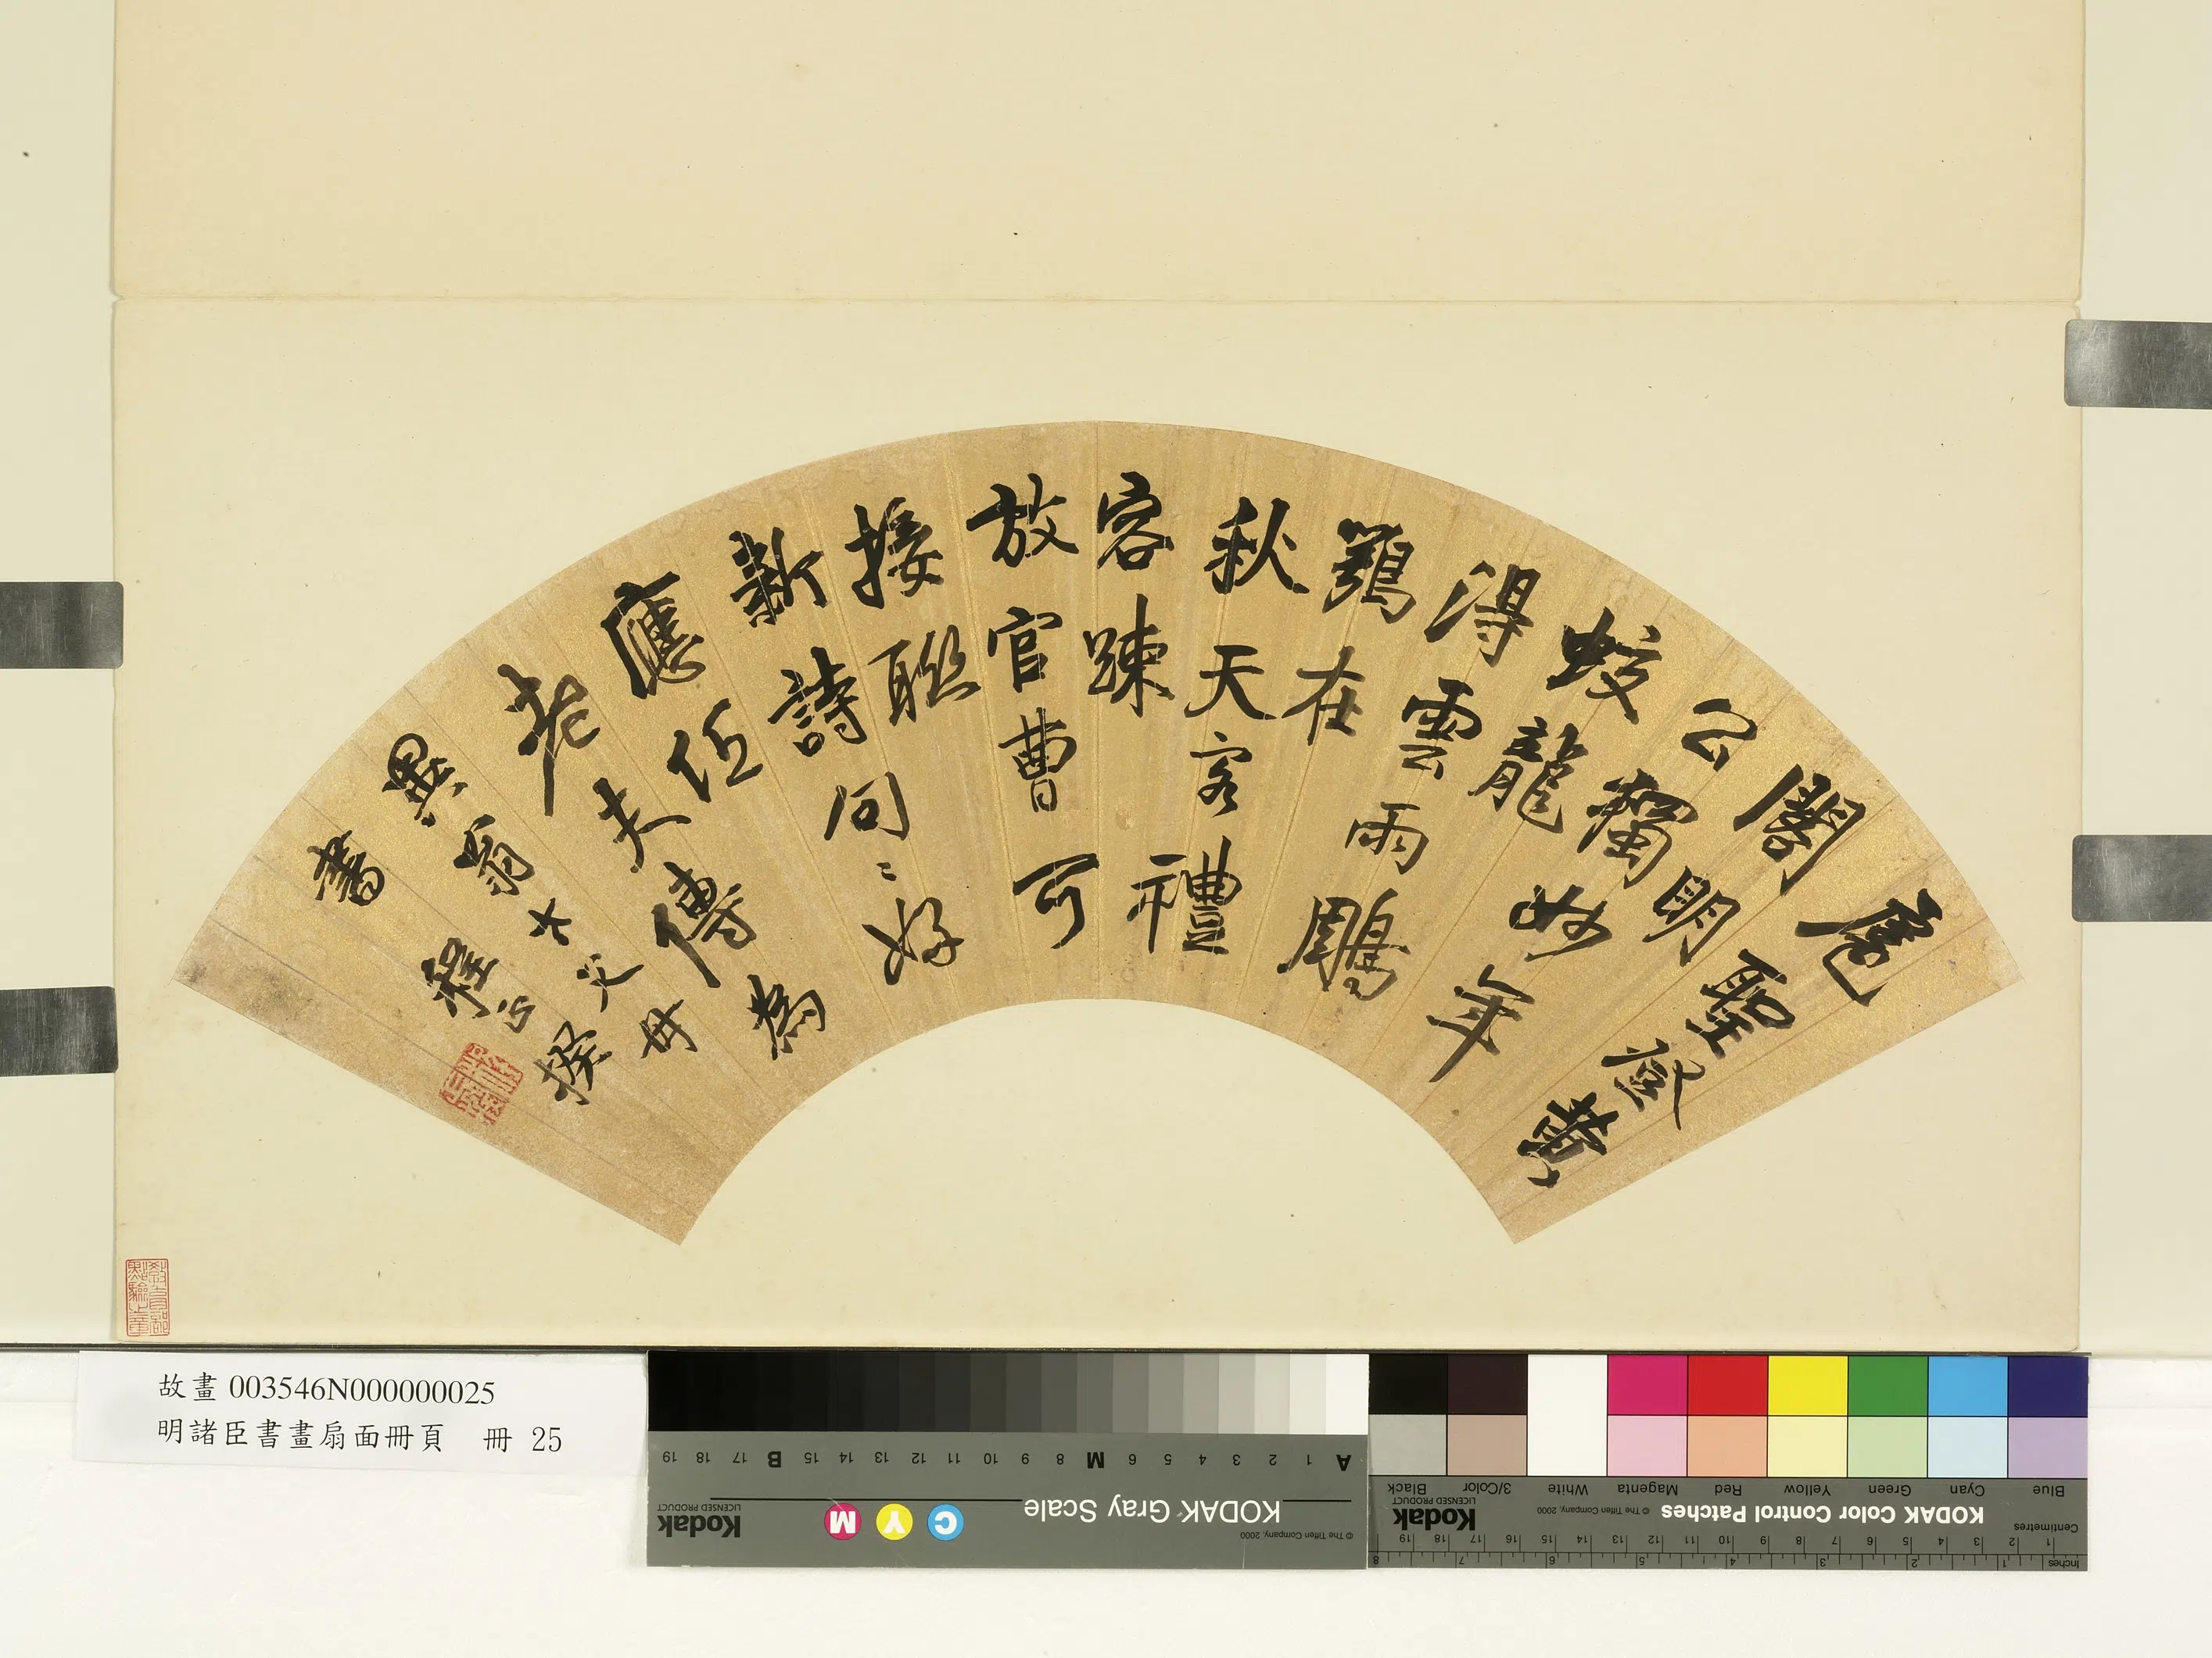 扈聖登黃
閣明
公獨妙年
蛟龍
得雲雨鵰
鶚在
秋天客禮
容踈
放官曹可
接聯
新詩句〻好
應任
老夫傳為
墨翁大父母
書程正揆
教育部
點驗之章
故畫 003546N000000025
明諸臣書畫扇面冊頁 冊 25
KODAK Gray Scale
© The Tiffen Company, 2000
Kodak
LICENSED PRODUCT
C Y M
A 1 2 3 4 5 6 M 8 9 10 11 12 13 14 15 B 17 18 19
Blue Cyan Green Yellow Red Magenta White 3/Color Black
KODAK Color Control Patches
© The Tiffen Company, 2000
Kodak
LICENSED PRODUCT
Centimetres 1 2 3 4 5 6 7 8 9 10 11 12 13 14 15 16 17 18 19
Inches 1 2 3 4 5 6 7 8